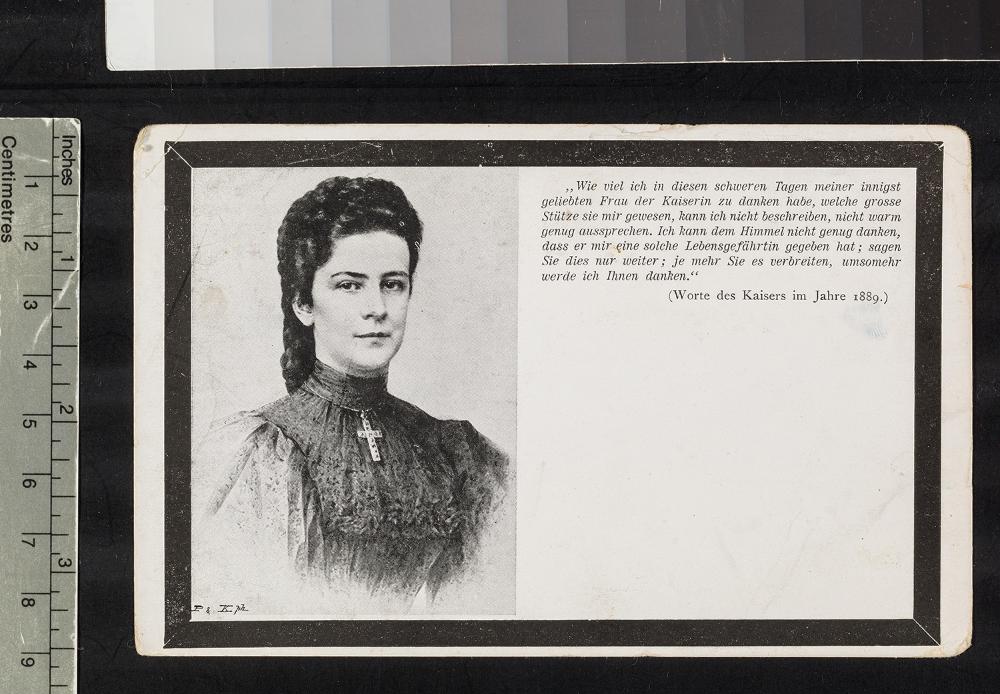 „Wie viel ich in diesen schweren Tagen meiner innigst
geliebten Frau der Kaiserin zu danken habe, welche grosse
Stütze sie mir gewesen, kann ich nicht beschreiben, nicht warm
genug aussprechen. Ich kann dem Himmel nicht genug danken,
dass er mir eine solche Lebensgefährtin gegeben hat; sagen
Sie dies nur weiter; je mehr Sie es verbreiten, umsomehr
werde ich Ihnen danken.“
(Worte des Kaisers im Jahre 1889.)
P & K ph.
Inches
1
2
3
Centimetres
1
2
3
4
5
6
7
8
9